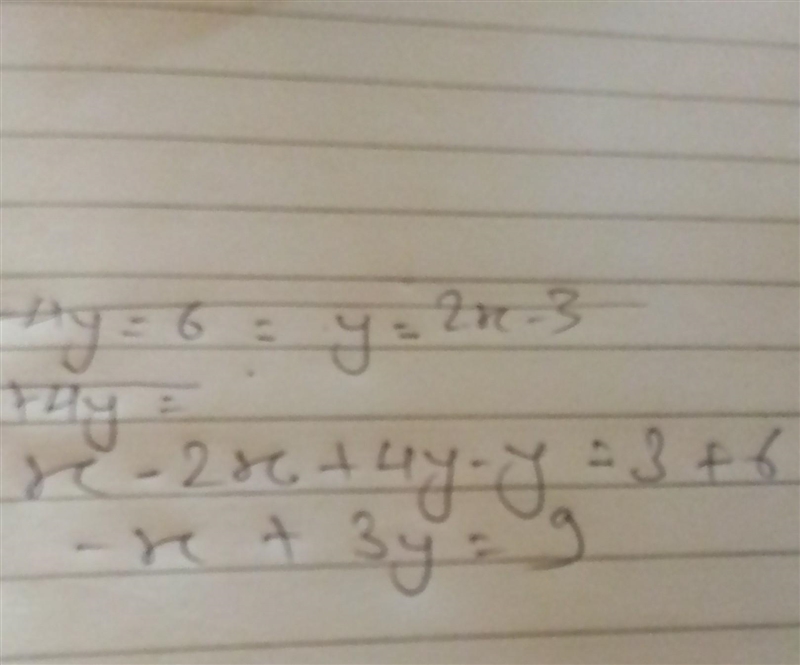 -4y = 6 = y = 2x - 3
+4y =
x - 2x + 4y - y = 3 + 6
- x + 3y = 9